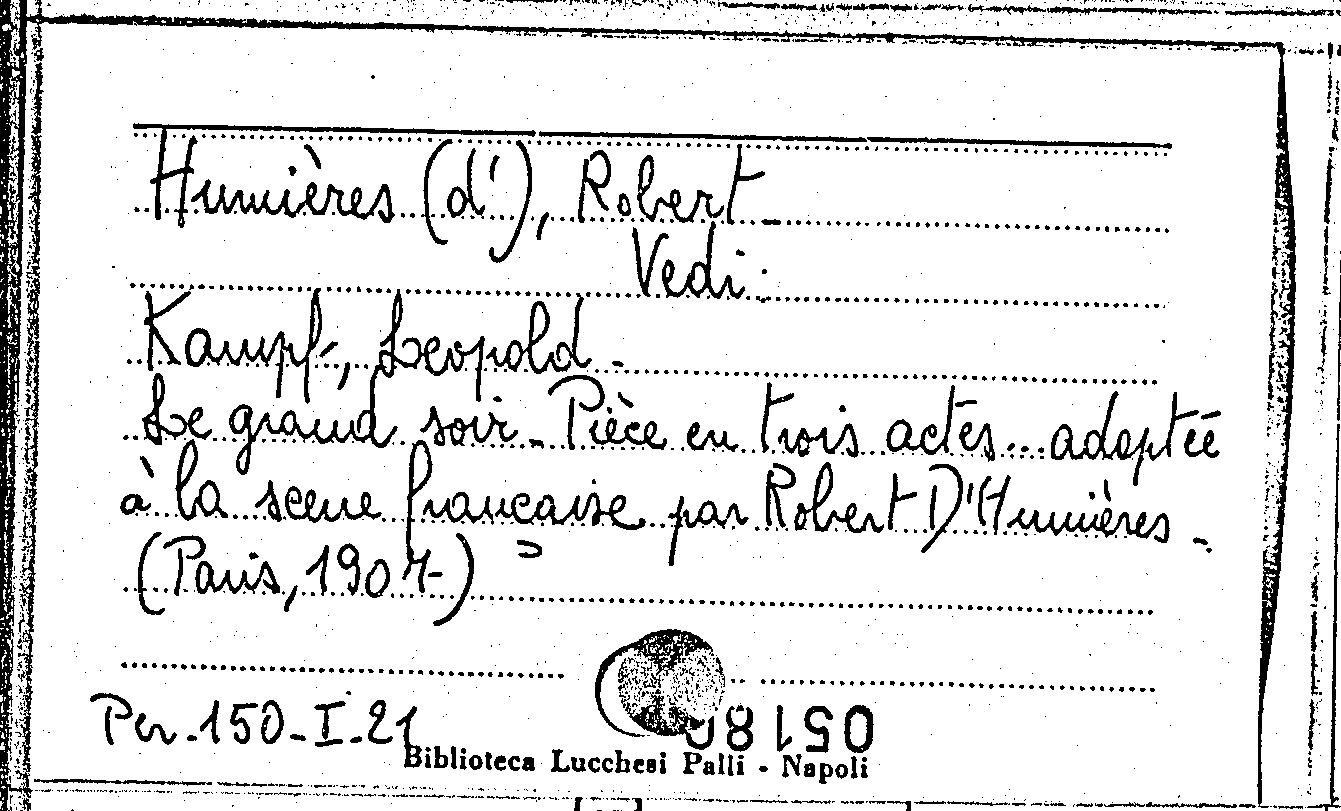 Humières (d'), Robert -
Vedi:
Kampf, Leopold -
Le grand soir - Pièce en trois actes... adaptée
à la scene française par Robert D'Humières -
(Paris, 1907)
Per. 150 - I - 21
Biblioteca Lucchesi Palli - Napoli